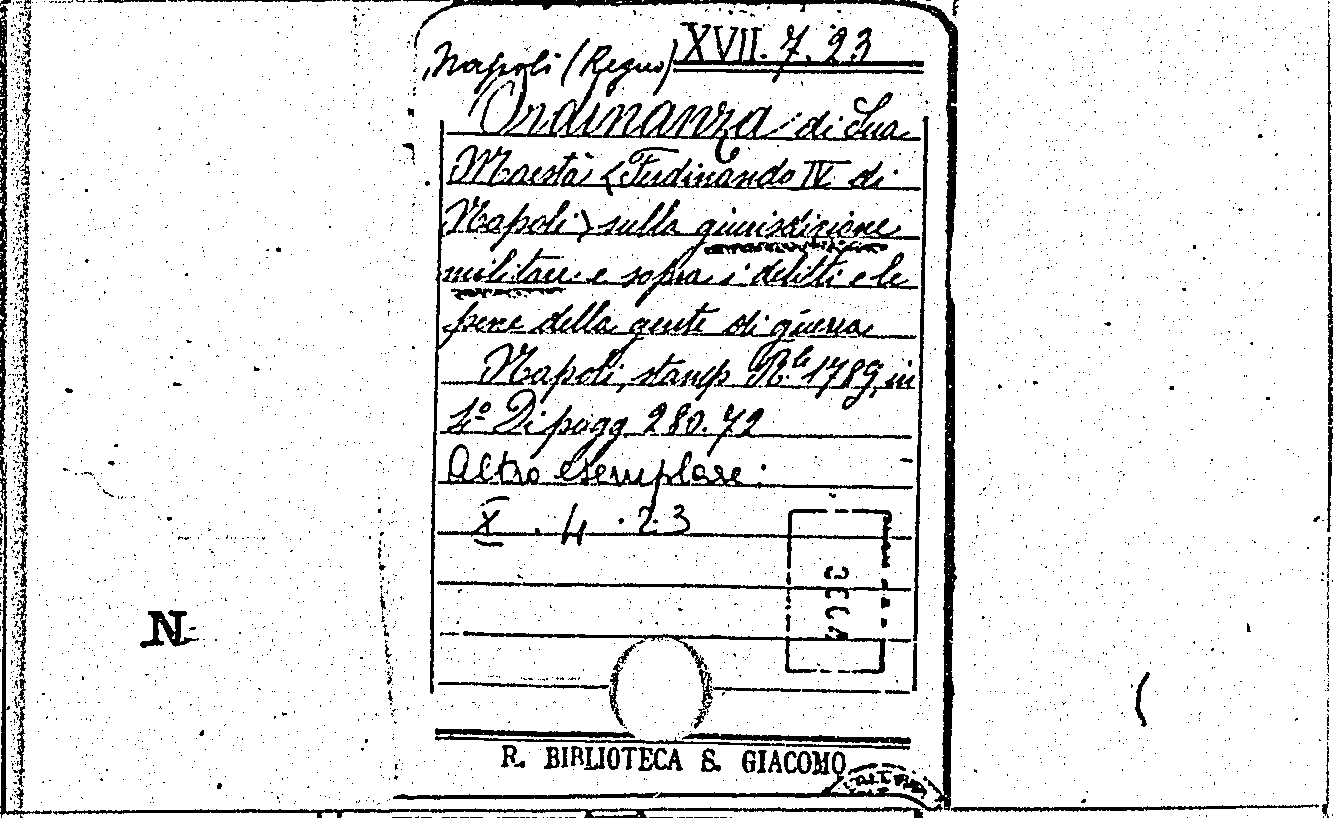 Napoli (Regno) XVII. 7. 23
Ordinanza di Sua
Maestà (Ferdinando IV di
Napoli) sulla giurisdizione
militare e sopra i delitti e le
pene della gente di guerra
Napoli, stamp. R.le 1789, in
4º Di pagg. 280. 72
Altro esemplare:
X . 4 . 23
N
R. BIBLIOTECA S. GIACOMO